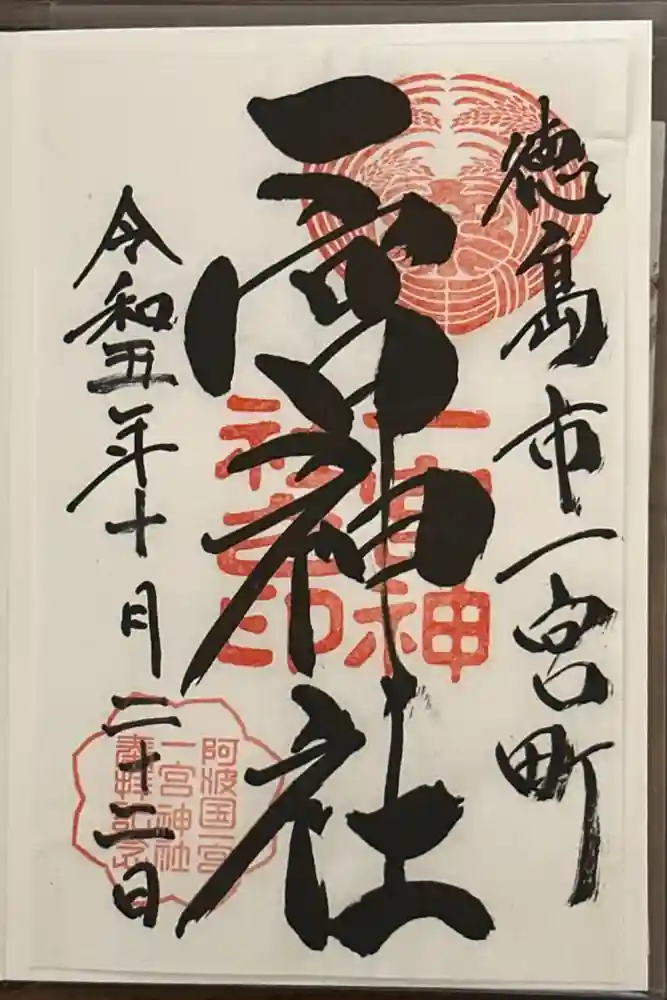 徳島市一宮町
一宮神社
令和五年十月二十二日
一宮神
社之印
阿波国一宮
一宮神社
参拝記念